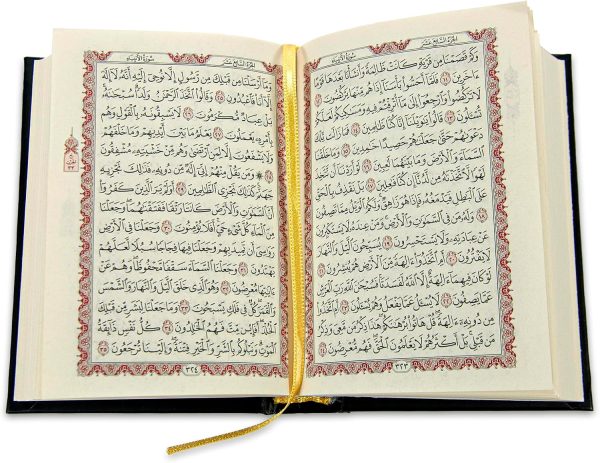 الجزء السابع عشر
سورة الأنبياء
وَكَمْ قَصَمْنَا مِن قَرْيَةٍ كَانَتْ ظَالِمَةً وَأَنشَأْنَا بَعْدَهَا قَوْمًا
ءَاخَرِينَ ١١ فَلَمَّآ أَحَسُّوا۟ بَأْسَنَآ إِذَا هُم مِّنْهَا يَرْكُضُونَ ١٢
لَا تَرْكُضُوا۟ وَٱرْجِعُوٓا۟ إِلَىٰ مَآ أُتْرِفْتُمْ فِيهِ وَمَسَٰكِنِكُمْ لَعَلَّكُمْ
تُسْـَٔلُونَ ١٣ قَالُوا۟ يَٰوَيْلَنَآ إِنَّا كُنَّا ظَٰلِمِينَ ١٤ فَمَا زَالَت تِّلْكَ
دَعْوَىٰهُمْ حَتَّىٰ جَعَلْنَٰهُمْ حَصِيدًا خَٰمِدِينَ ١٥ وَمَا خَلَقْنَا
ٱلسَّمَآءَ وَٱلْأَرْضَ وَمَا بَيْنَهُمَا لَٰعِبِينَ ١٦ لَوْ أَرَدْنَآ أَن نَّتَّخِذَ
لَهْوًا لَّٱتَّخَذْنَٰهُ مِن لَّدُنَّآ إِن كُنَّا فَٰعِلِينَ ١٧ بَلْ نَقْذِفُ بِٱلْحَقِّ
عَلَى ٱلْبَٰطِلِ فَيَدْمَغُهُۥ فَإِذَا هُوَ زَاهِقٌ وَلَكُمُ ٱلْوَيْلُ مِمَّا تَصِفُونَ
١٨ وَلَهُۥ مَن فِى ٱلسَّمَٰوَٰتِ وَٱلْأَرْضِ وَمَنْ عِندَهُۥ لَا يَسْتَكْبِرُونَ
عَنْ عِبَادَتِهِۦ وَلَا يَسْتَحْسِرُونَ ١٩ يُسَبِّحُونَ ٱلَّيْلَ وَٱلنَّهَارَ
لَا يَفْتُرُونَ ٢٠ أَمِ ٱتَّخَذُوٓا۟ ءَالِهَةً مِّنَ ٱلْأَرْضِ هُمْ يُنشِرُونَ ٢١
لَوْ كَانَ فِيهِمَآ ءَالِهَةٌ إِلَّا ٱللَّهُ لَفَسَدَتَا فَسُبْحَٰنَ ٱللَّهِ رَبِّ ٱلْعَرْشِ
عَمَّا يَصِفُونَ ٢٢ لَا يُسْـَٔلُ عَمَّا يَفْعَلُ وَهُمْ يُسْـَٔلُونَ ٢٣ أَمِ ٱتَّخَذُوا۟
مِن دُونِهِۦٓ ءَالِهَةً قُلْ هَاتُوا۟ بُرْهَٰنَكُمْ هَٰذَا ذِكْرُ مَن مَّعِىَ وَذِكْرُ
مَن قَبْلِى بَلْ أَكْثَرُهُمْ لَا يَعْلَمُونَ ٱلْحَقَّ فَهُم مُّعْرِضُونَ ٢٤
٣٢٣
الجزء السابع عشر
سورة الأنبياء
وَمَآ أَرْسَلْنَا مِن قَبْلِكَ مِن رَّسُولٍ إِلَّا نُوحِىٓ إِلَيْهِ أَنَّهُۥ لَآ إِلَٰهَ
إِلَّآ أَنَا۠ فَٱعْبُدُونِ ٢٥ وَقَالُوا۟ ٱتَّخَذَ ٱلرَّحْمَٰنُ وَلَدًا سُبْحَٰنَهُۥ
بَلْ عِبَادٌ مُّكْرَمُونَ ٢٦ لَا يَسْبِقُونَهُۥ بِٱلْقَوْلِ وَهُم
بِأَمْرِهِۦ يَعْمَلُونَ ٢٧ يَعْلَمُ مَا بَيْنَ أَيْدِيهِمْ وَمَا خَلْفَهُمْ
وَلَا يَشْفَعُونَ إِلَّا لِمَنِ ٱرْتَضَىٰ وَهُم مِّنْ خَشْيَتِهِۦ مُشْفِقُونَ
٢٨ ۞ وَمَن يَقُلْ مِنْهُمْ إِنِّىٓ إِلَٰهٌ مِّن دُونِهِۦ فَذَٰلِكَ نَجْزِيهِ
جَهَنَّمَ كَذَٰلِكَ نَجْزِى ٱلظَّٰلِمِينَ ٢٩ أَوَلَمْ يَرَ ٱلَّذِينَ كَفَرُوٓا۟
أَنَّ ٱلسَّمَٰوَٰتِ وَٱلْأَرْضَ كَانَتَا رَتْقًا فَفَتَقْنَٰهُمَا وَجَعَلْنَا
مِنَ ٱلْمَآءِ كُلَّ شَىْءٍ حَىٍّ أَفَلَا يُؤْمِنُونَ ٣٠ وَجَعَلْنَا فِى ٱلْأَرْضِ
رَوَٰسِىَ أَن تَمِيدَ بِهِمْ وَجَعَلْنَا فِيهَا فِجَاجًا سُبُلًا لَّعَلَّهُمْ
يَهْتَدُونَ ٣١ وَجَعَلْنَا ٱلسَّمَآءَ سَقْفًا مَّحْفُوظًا وَهُمْ عَنْ
ءَايَٰتِهَا مُعْرِضُونَ ٣٢ وَهُوَ ٱلَّذِى خَلَقَ ٱلَّيْلَ وَٱلنَّهَارَ وَٱلشَّمْسَ
وَٱلْقَمَرَ كُلٌّ فِى فَلَكٍ يَسْبَحُونَ ٣٣ وَمَا جَعَلْنَا لِبَشَرٍ مِّن قَبْلِكَ
ٱلْخُلْدَ أَفَإِي۟ن مِّتَّ فَهُمُ ٱلْخَٰلِدُونَ ٣٤ كُلُّ نَفْسٍ ذَآئِقَةُ
ٱلْمَوْتِ وَنَبْلُوكُم بِٱلشَّرِّ وَٱلْخَيْرِ فِتْنَةً وَإِلَيْنَا تُرْجَعُونَ ٣٥
٣٢٤